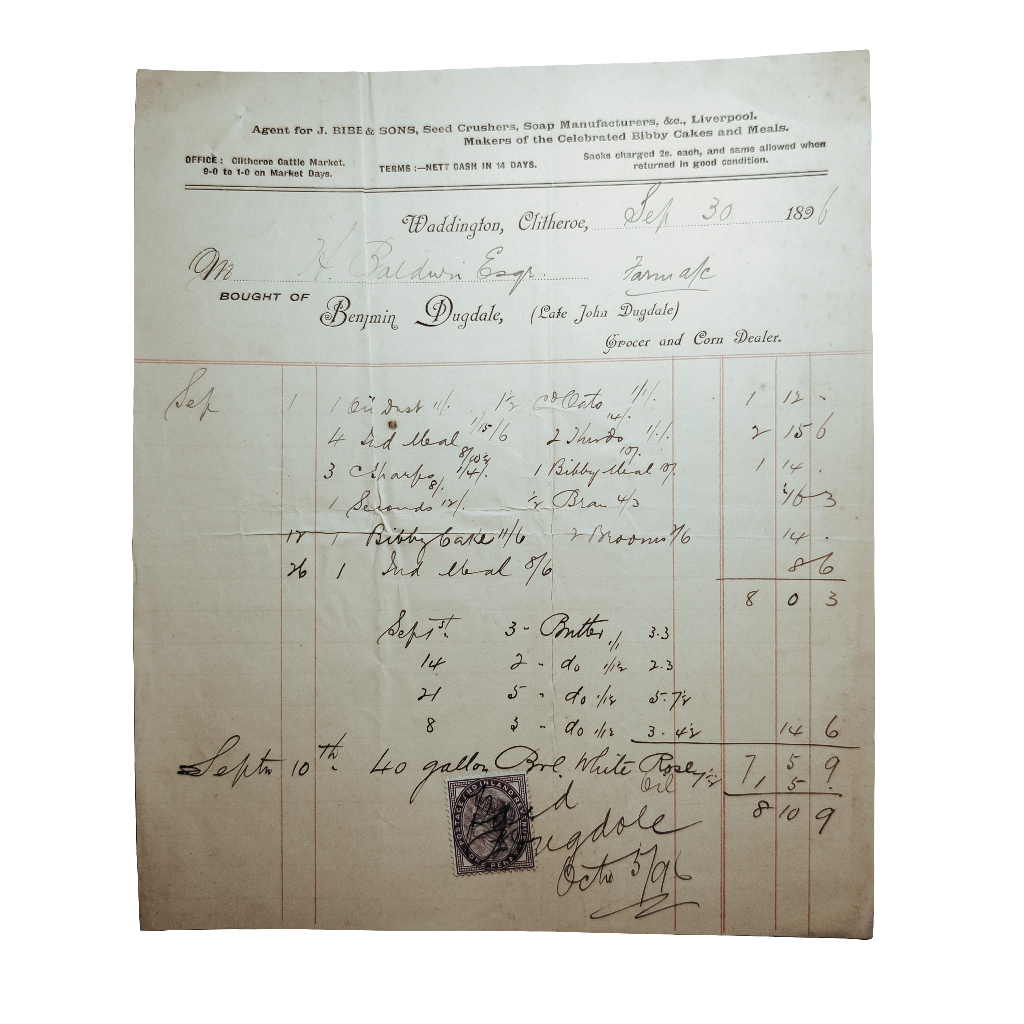 Agent for J. BIBB & SONS, Seed Crushers, Soap Manufacturers, &c., Liverpool.
Makers of the Celebrated Bibby Cakes and Meals.
OFFICE: Clitheroe Cattle Market.
9-0 to 1-0 on Market Days.
TERMS:—NETT CASH IN 14 DAYS.
Sacks charged 2s. each, and same allowed when
returned in good condition.
Waddington, Clitheroe, Sep 30 1896
M H. Baldwin Esqr. Farm a/c
BOUGHT OF
Benjmin Dugdale, (Late John Dugdale)
Grocer and Corn Dealer.
Sep 1 1 Oil Dust 11/. 1½ Oats 1 12 -
4 Ind Meal 2 Thirds 2 15 6
3 Sharps 1 Bibby Meal 1 14 .
1 Seconds 12/. ½ Bran 4/3 16 3
12 1 Bibby Cake 11/6 2 Brooms 2/6 14 .
26 1 Ind Meal 8/6 8 6
8 0 3
Sept 1st. 3 - Butter 1/1 3.3
14 2 - do 1/1½ 2.3
21 5 - do 1/1½ 5.7½
8 3 - do 1/1½ 3.4½ 14 6
7 5 9
Septr 10th. 40 gallon Brl. White Rose Oil 7½ 1 5 .
8 10 9
POSTAGE AND INLAND REVENUE
ONE PENNY
Paid
Dugdale
Octr 5/96